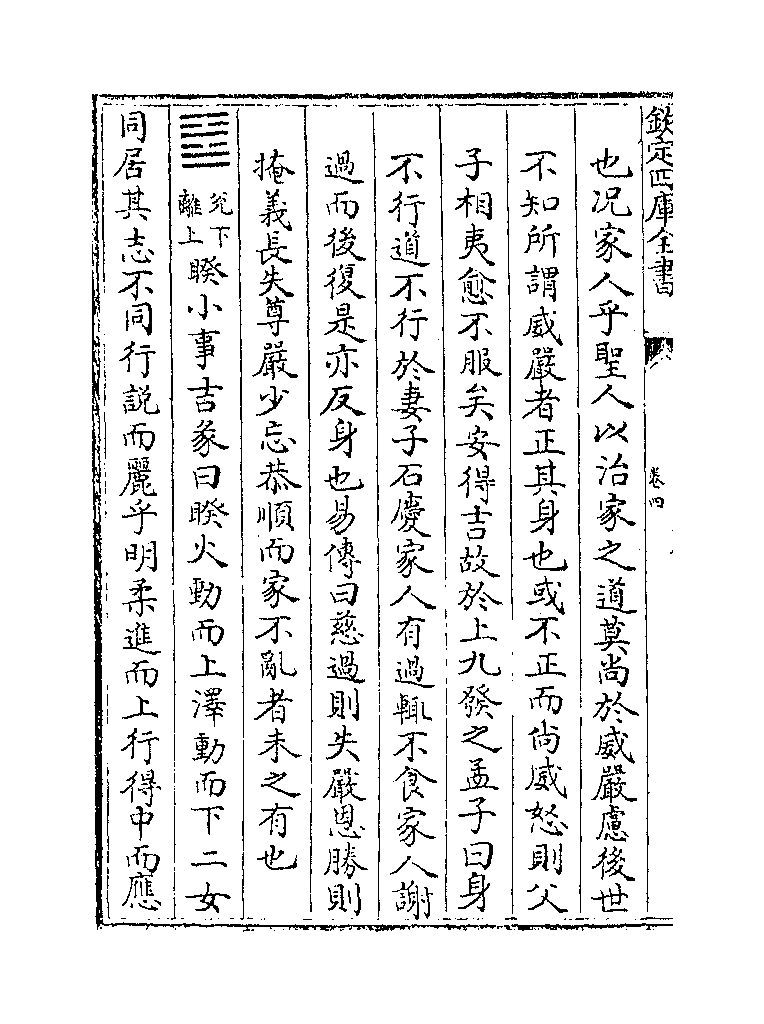 欽定四庫全書
卷四
也况家人乎聖人以治家之道莫尚於威嚴慮後世
不知所謂威嚴者正其身也或不正而尚威怒則父
子相夷愈不服矣安得吉故於上九發之孟子曰身
不行道不行於妻子石慶家人有過輒不食家人謝
過而後復是亦反身也易傳曰慈過則失嚴恩勝則
掩義長失尊嚴少忘恭順而家不亂者未之有也
䷥兌下離上睽小事吉彖曰睽火動而上澤動而下二女
同居其志不同行説而麗乎明柔進而上行得中而應